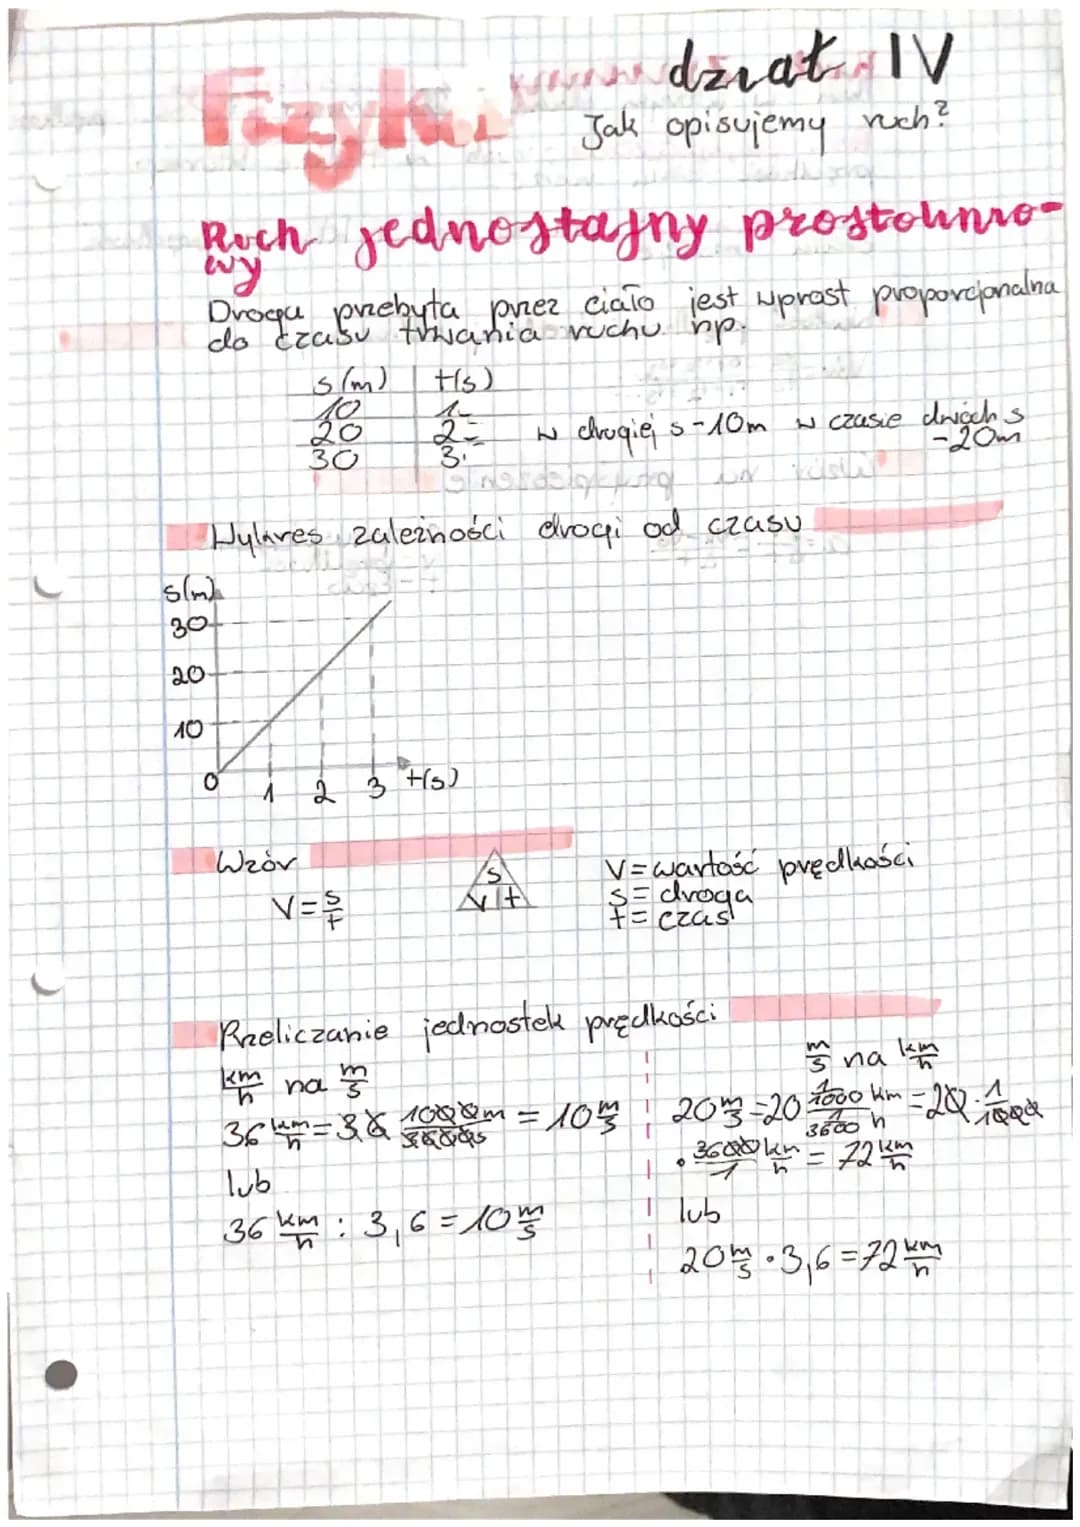 Fizyka
dział IV
Jak opisujemy ruch?
Ruch jednostajny prostolinio-
wy
Droga przebyta przez ciało jest wprost proporcjonalna
do czasu trwania ruchu np.
s(m) t(s)
10 1
20 2
30 3
w drugiej s-10m w czasie dwóch s
-20m
Wykres zależności drogi od czasu
s(m)
30
20
10
0 1 2 3 t(s)
Wzór
V=s/t
s
v t
V=wartość prędkości
s=droga
t=czas
Przeliczanie jednostek prędkości
km/h na m/s
36 km/h = 36 1000m/3600s = 10 m/s
lub
36 km/h : 3,6 = 10 m/s
m/s na km/h
20 m/s = 20 1/1000 km / 1/3600 h = 20 · 1/1000
· 3600/1 km/h = 72 km/h
lub
20 m/s · 3,6 = 72 km/h